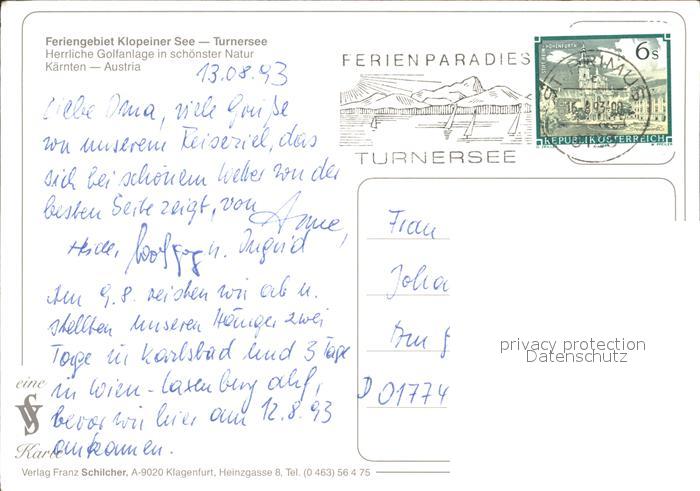 Feriengebiet Klopeiner See — Turnersee
Herrliche Golfanlage in schönster Natur
Kärnten — Austria
13.08.93
Liebe Oma, viele Grüße
von unserem Reiseziel, das
sich bei schönem Wetter von der
besten Seite zeigt, von Anne,
Heiko, Wolfgang u. Ingrid
Am 9.8. reisten wir ab u.
stellten unseren Hänger zwei
Tage in Karlsbad und 3 Tage
in Wien-Laxenburg auf,
bevor wir hier am 12.8.93
ankamen.
eine
Karte
Verlag Franz Schilcher, A-9020 Klagenfurt, Heinzgasse 8, Tel. (0 463) 56 4 75
FERIENPARADIES
TURNERSEE
6 S
REPUBLIK ÖSTERREICH
Frau
Joha
Am
D 01774
privacy protection
Datenschutz